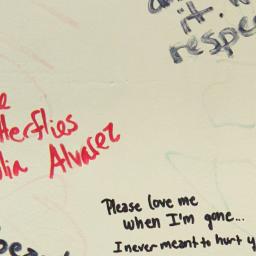 it.
respec
e
tterflies
lia Alvarez
Please love me
when I'm gone...
I never meant to hurt y